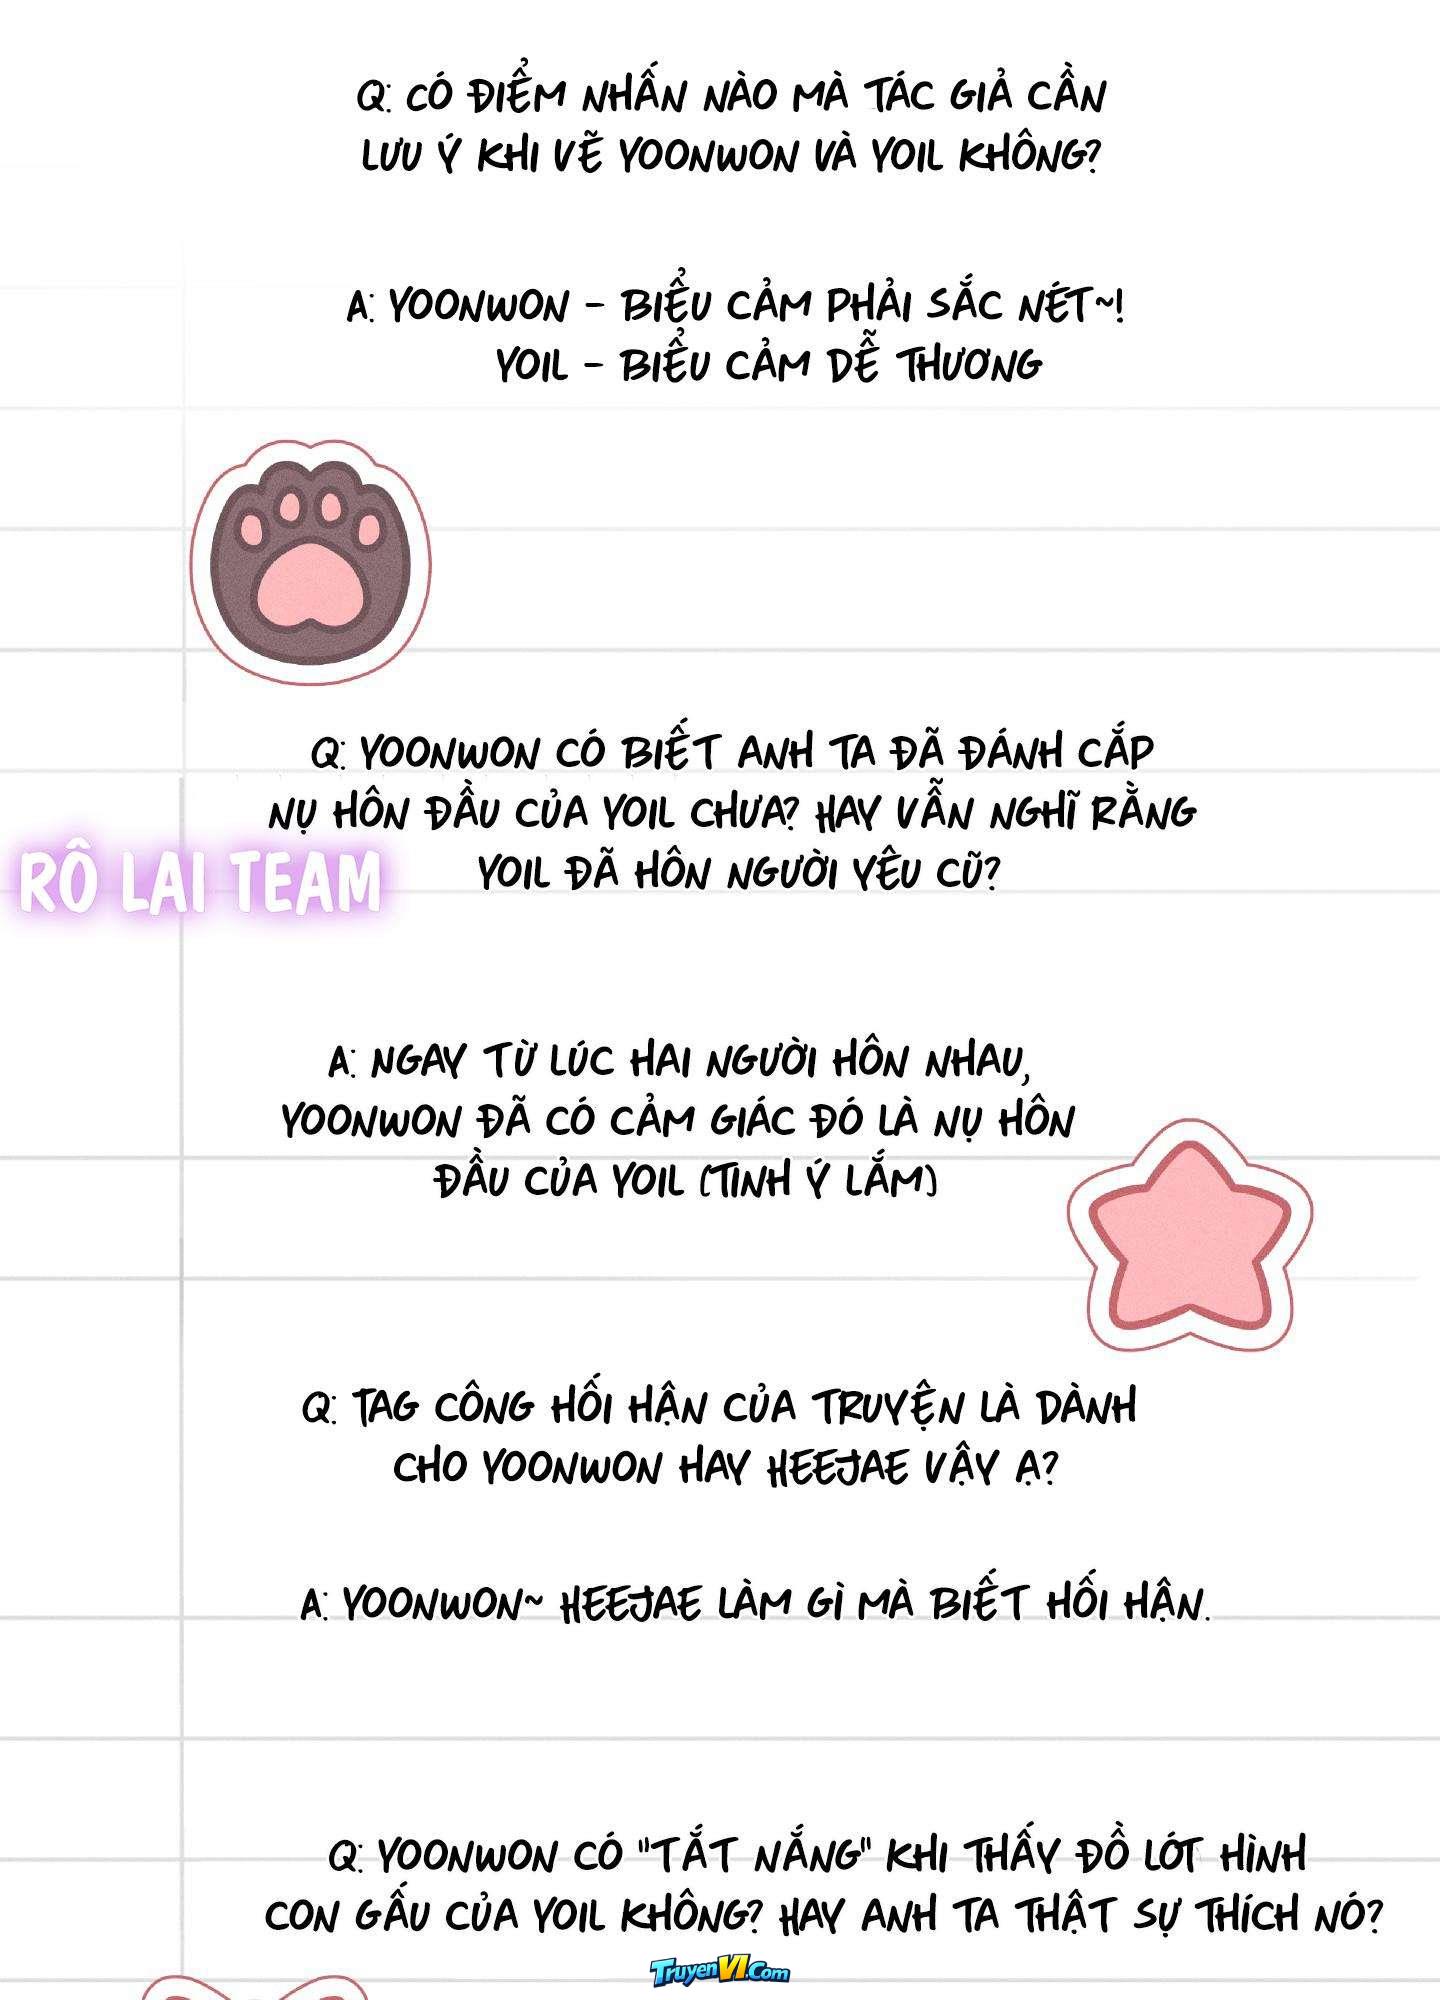 Q: CÓ ĐIỂM NHẤN NÀO MÀ TÁC GIẢ CẦN
LƯU Ý KHI VẼ YOONWON VÀ YOIL KHÔNG?
A: YOONWON - BIỂU CẢM PHẢI SẮC NÉT~!
YOIL - BIỂU CẢM DỄ THƯƠNG
Q: YOONWON CÓ BIẾT ANH TA ĐÃ ĐÁNH CẮP
NỤ HÔN ĐẦU CỦA YOIL CHƯA? HAY VẪN NGHĨ RẰNG
YOIL ĐÃ HÔN NGƯỜI YÊU CŨ?
RÔ LAI TEAM
A: NGAY TỪ LÚC HAI NGƯỜI HÔN NHAU,
YOONWON ĐÃ CÓ CẢM GIÁC ĐÓ LÀ NỤ HÔN
ĐẦU CỦA YOIL (TINH Ý LẮM)
Q: TAG CÔNG HỐI HẬN CỦA TRUYỆN LÀ DÀNH
CHO YOONWON HAY HEEJAE VẬY Ạ?
A: YOONWON~ HEEJAE LÀM GÌ MÀ BIẾT HỐI HẬN.
Q: YOONWON CÓ "TẮT NẮNG" KHI THẤY ĐỒ LÓT HÌNH
CON GẤU CỦA YOIL KHÔNG? HAY ANH TA THẬT SỰ THÍCH NÓ?
TruyenVI.Com